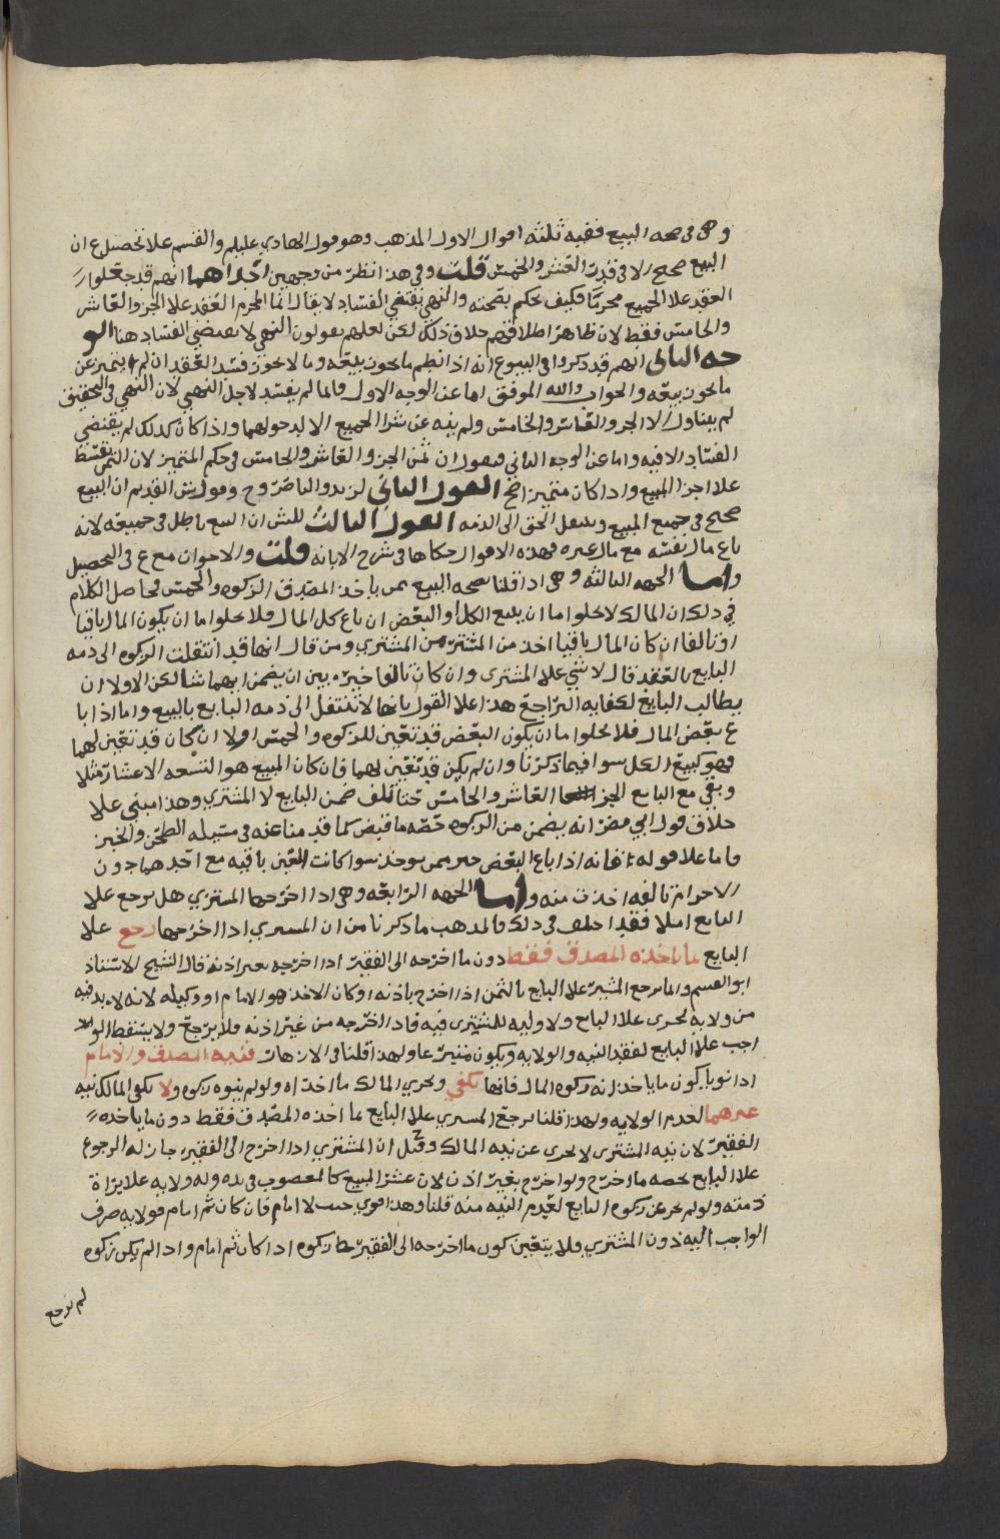 وهي في صحه البيع ففيه ثلثه اقوال الاول المذهب وهو قول الهادي عليلم والقسم علا تحصيل ع ان
البيع صحيح الا في قدر العشر والخمس قلت وفي هذا نظر من وجهين احداهما انهم قد جعلوا
العقد علا الجميع محرما فكيف يحكم بصحته والنهي يقتضي الفساد لا يقال انما المحرم العقد علا الجزو العاشر
والخامس فقط لان ظاهر اطلاقهم خلاف ذلك لكن لعلهم يقولون النهي لا يقتضي الفساد هنا الو
جه الثاني انهم قد ذكروا في البيوع انه اذا انظم ما يجوز بيعه وما لا يجوز فسد العقد ان لم يتميز عن
ما يجوز بيعه والجواب والله الموفق اما عن الوجه الاول فانما لم يفسد لاجل النهي لان النهي في التحقيق
لم يتناول الا الجزو العاشر والخامس ولم ينه عن شرا الجميع الا لدخولهما واذا كان كذلك لم يقتضي
الفساد الا فيه واما عن الوجه الثاني فنقول ان ثمن الجزو العاشر والخامس في حكم المتميز لان الثمن يقسط
علا اجزا المبيع واذا كان متميز اصح القول الثاني لزيد والناصر وح وقول ش القديم ان البيع
صحيح في جميع المبيع وينتقل الحق الى الذمه القول الثالث للش ان البيع باطل في جميعه لانه
باع مال نفسه مع مال غيره فهذه الاقوال حكاها في شرح الابانه قلت والاخوان مع ع في التحصيل
واما الجهه الثالثه وهي اذا قلنا بصحه البيع ممن ياخذ المصدق الزكوه والخمس فحاصل الكلام
في ذلك ان المالك لا يخلوا اما ان يبيع الكل او البعض ان باع كل المال فلا يخلوا اما ان يكون المال باقيا
او تالفا ان كان المال باقيا اخذ من المشتري ومن قال انها قد انتقلت الزكوه الى ذمه
البايع بالعقد قال لا شي علا المشتري وان كان تالفا خير بين ان يضمن ايهما شا لكن الاولا ان
يطالب البايع لكفايه التراجع هذا علا القول بانها لا تنتقل الى ذمه البايع بالبيع واما اذا با
ع بعض المال فلا يخلوا اما ان يكون البعض قد تعين للزكوه والخمس اولا ان كان قد تعين لهما
فهو كبيع الكل سوا فيما ذكرنا وان لم يكن قد تعين لهما فان كان المبيع هو التسعه الاعشار مثلا
وبقي مع البايع الجز العاشر والخامس حتا تلف ضمن البايع لا المشتري وهذا مبني علا
خلاف قول ابي مضر انه يضمن من الزكوه حصه ما قبض كما قدمنا عنه في مسيله الطحن والخبز
فاما علا قوله فانه اذا باع البعض خير ممن يوخذ سوا كانت العين باقيه مع احدهما دون
الاخر ام تالفه اخذت منه واما الجهه الرابعه وهي اذا اخرجها المشتري هل يرجع علا
البايع ام لا فقد اختلف في ذلك فالمذهب ما ذكرنا من ان المشتري اذا اخرجها رجع علا
البايع بما ياخذه المصدق فقط دون ما اخرجه الى الفقير اذا اخرجه بغير اذنه قال الشيخ الاستاذ
ابو القسم وانما يرجع المشتري علا البايع بالثمن اذا اخرج باذنه او كان الاخذ هو الامام او وكيله لانه لا بد فيه
من ولايه لحرى علا البايع ولا وليه للمشتري فيه فاذا اخرجه من غير اذنه فلا يرجع ولا يسقط الو
اجب علا البايع لفقد النيه والولايه ويكون متبرعا ولهذا قلنا في الازهار فنيه المصدق والامام
اذا نويا بكون ما ياخذانه زكوه المال فانها تكفي وتجزي المالك ما اخذاه ولو لم ينوه زكوه ولا تكفي المالك نيه
غيرهما لعدم الولايه ولهذا قلنا يرجع المشتري علا البايع بما اخذه المصدق فقط دون ما ياخذه
الفقير لان نيه المشتري لا تجزي عن نيه المالك وقيل ان المشتري اذا اخرج الى الفقير جاز له الرجوع
علا البايع بحصه ما اخرج ولو اخرج بغير اذن لان عشر المبيع كالمغصوب في يده وله ولايه علا براة
ذمته ولو لم يجز عن زكوه البايع لعدم النيه منه قلنا وهذا قوي حيث لا امام فان كان ثم امام فولايه صرف
الواجب اليه دون المشتري فلا يتعين كون ما اخرجه الى الفقير زكوه اذا كان ثم امام واذا لم يكن زكوه
لم يرجع